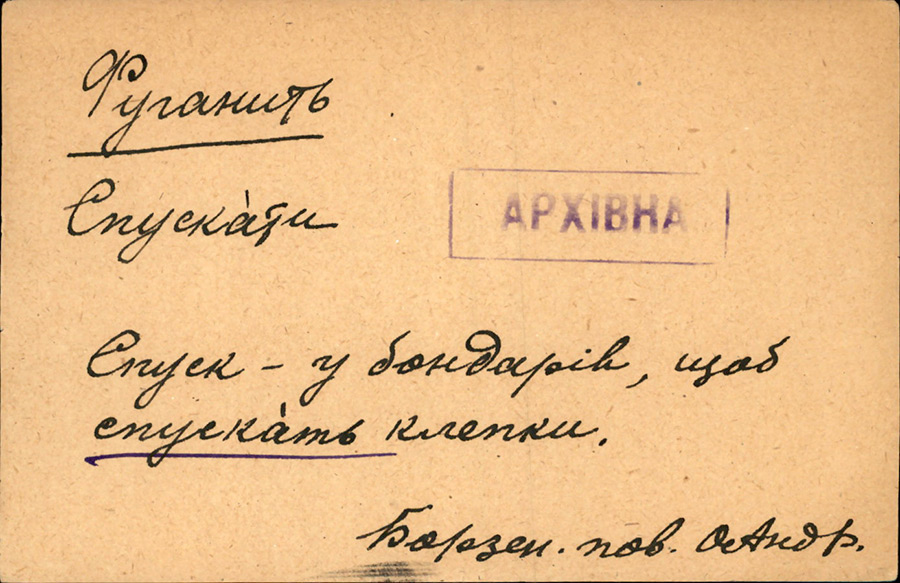 Фуганить
Спуска̀ти
АРХІВНА
Спуск - у бондарів, щоб
спуска̀ть клепки.
Борзен. пов. О. Андр.